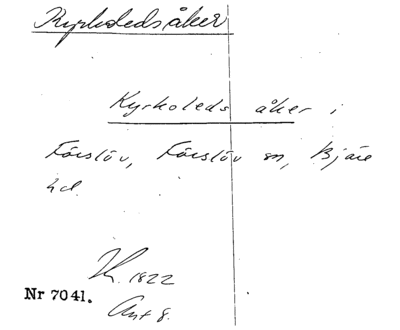 Kyrkoledsåker
Kyrkoleds åker i
Förslöv, Förslöv sn, Bjäre
hd.
1822
Nr 7041.
Akt 8.